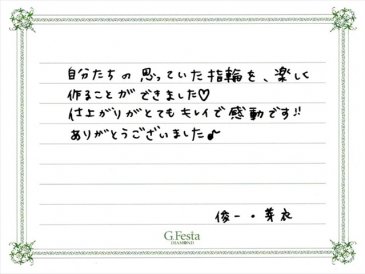 自分たちの思っていた指輪を、楽しく
作ることができました♡
仕上がりがとてもキレイで感動です!!
ありがとうございました♪
俊一・芽衣
G.Festa
DIAMOND